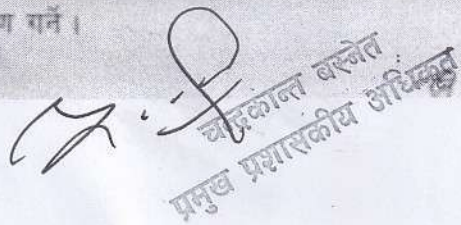 गर्ने ।
चन्द्रकान्त बस्नेत
प्रमुख प्रशासकीय अधिकृत